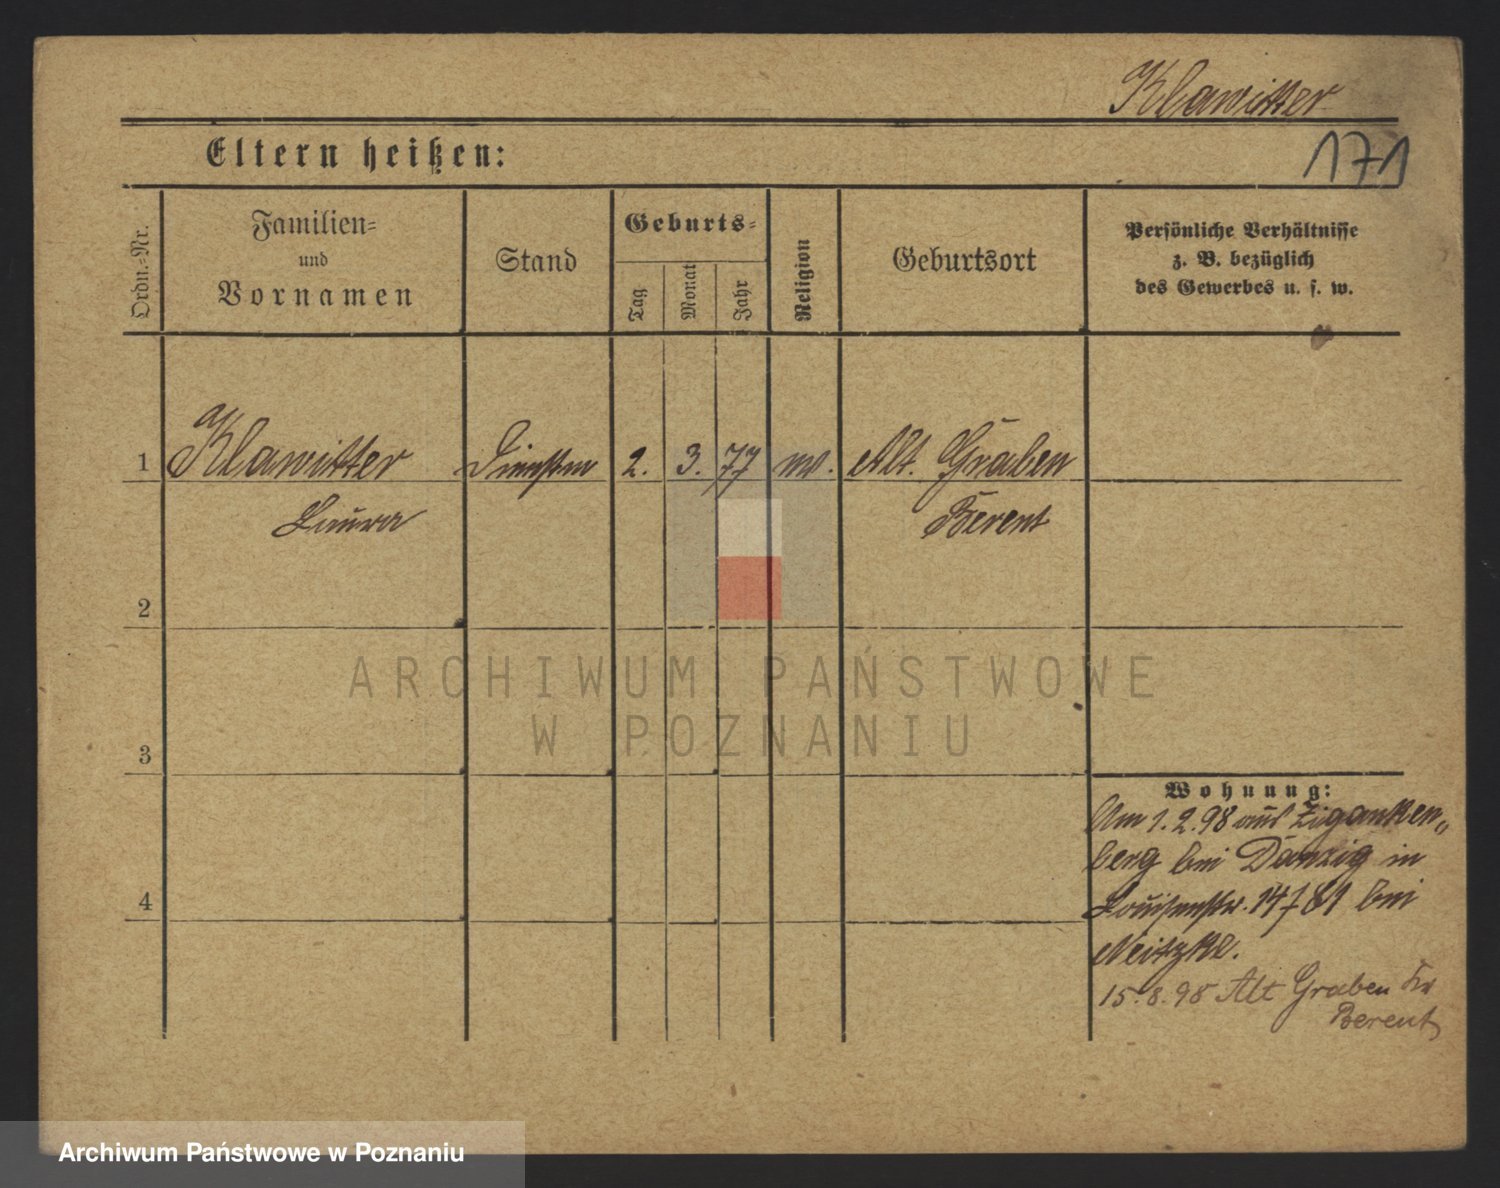 Klawitter
171
Eltern heißen:
Ordn.-Nr.
Familien-
und
Vornamen
Stand
Geburts-
Tag
Monat
Jahr
Religion
Geburtsort
Persönliche Verhältnisse
z. B. bezüglich
des Gewerbes u. s. w.
1 Klawitter 2. 3. 77 Alt. Graben
Laura Berent
2
3
4
ARCHIWUM PAŃSTWOWE
W POZNANIU
Wohnung:
Am 1.2.98 aus Ziganken„
berg bei Danzig in
Louisenstr. bei
Neitzke.
15.8.98 Alt Graben Kr
Berent
Archiwum Państwowe w Poznaniu